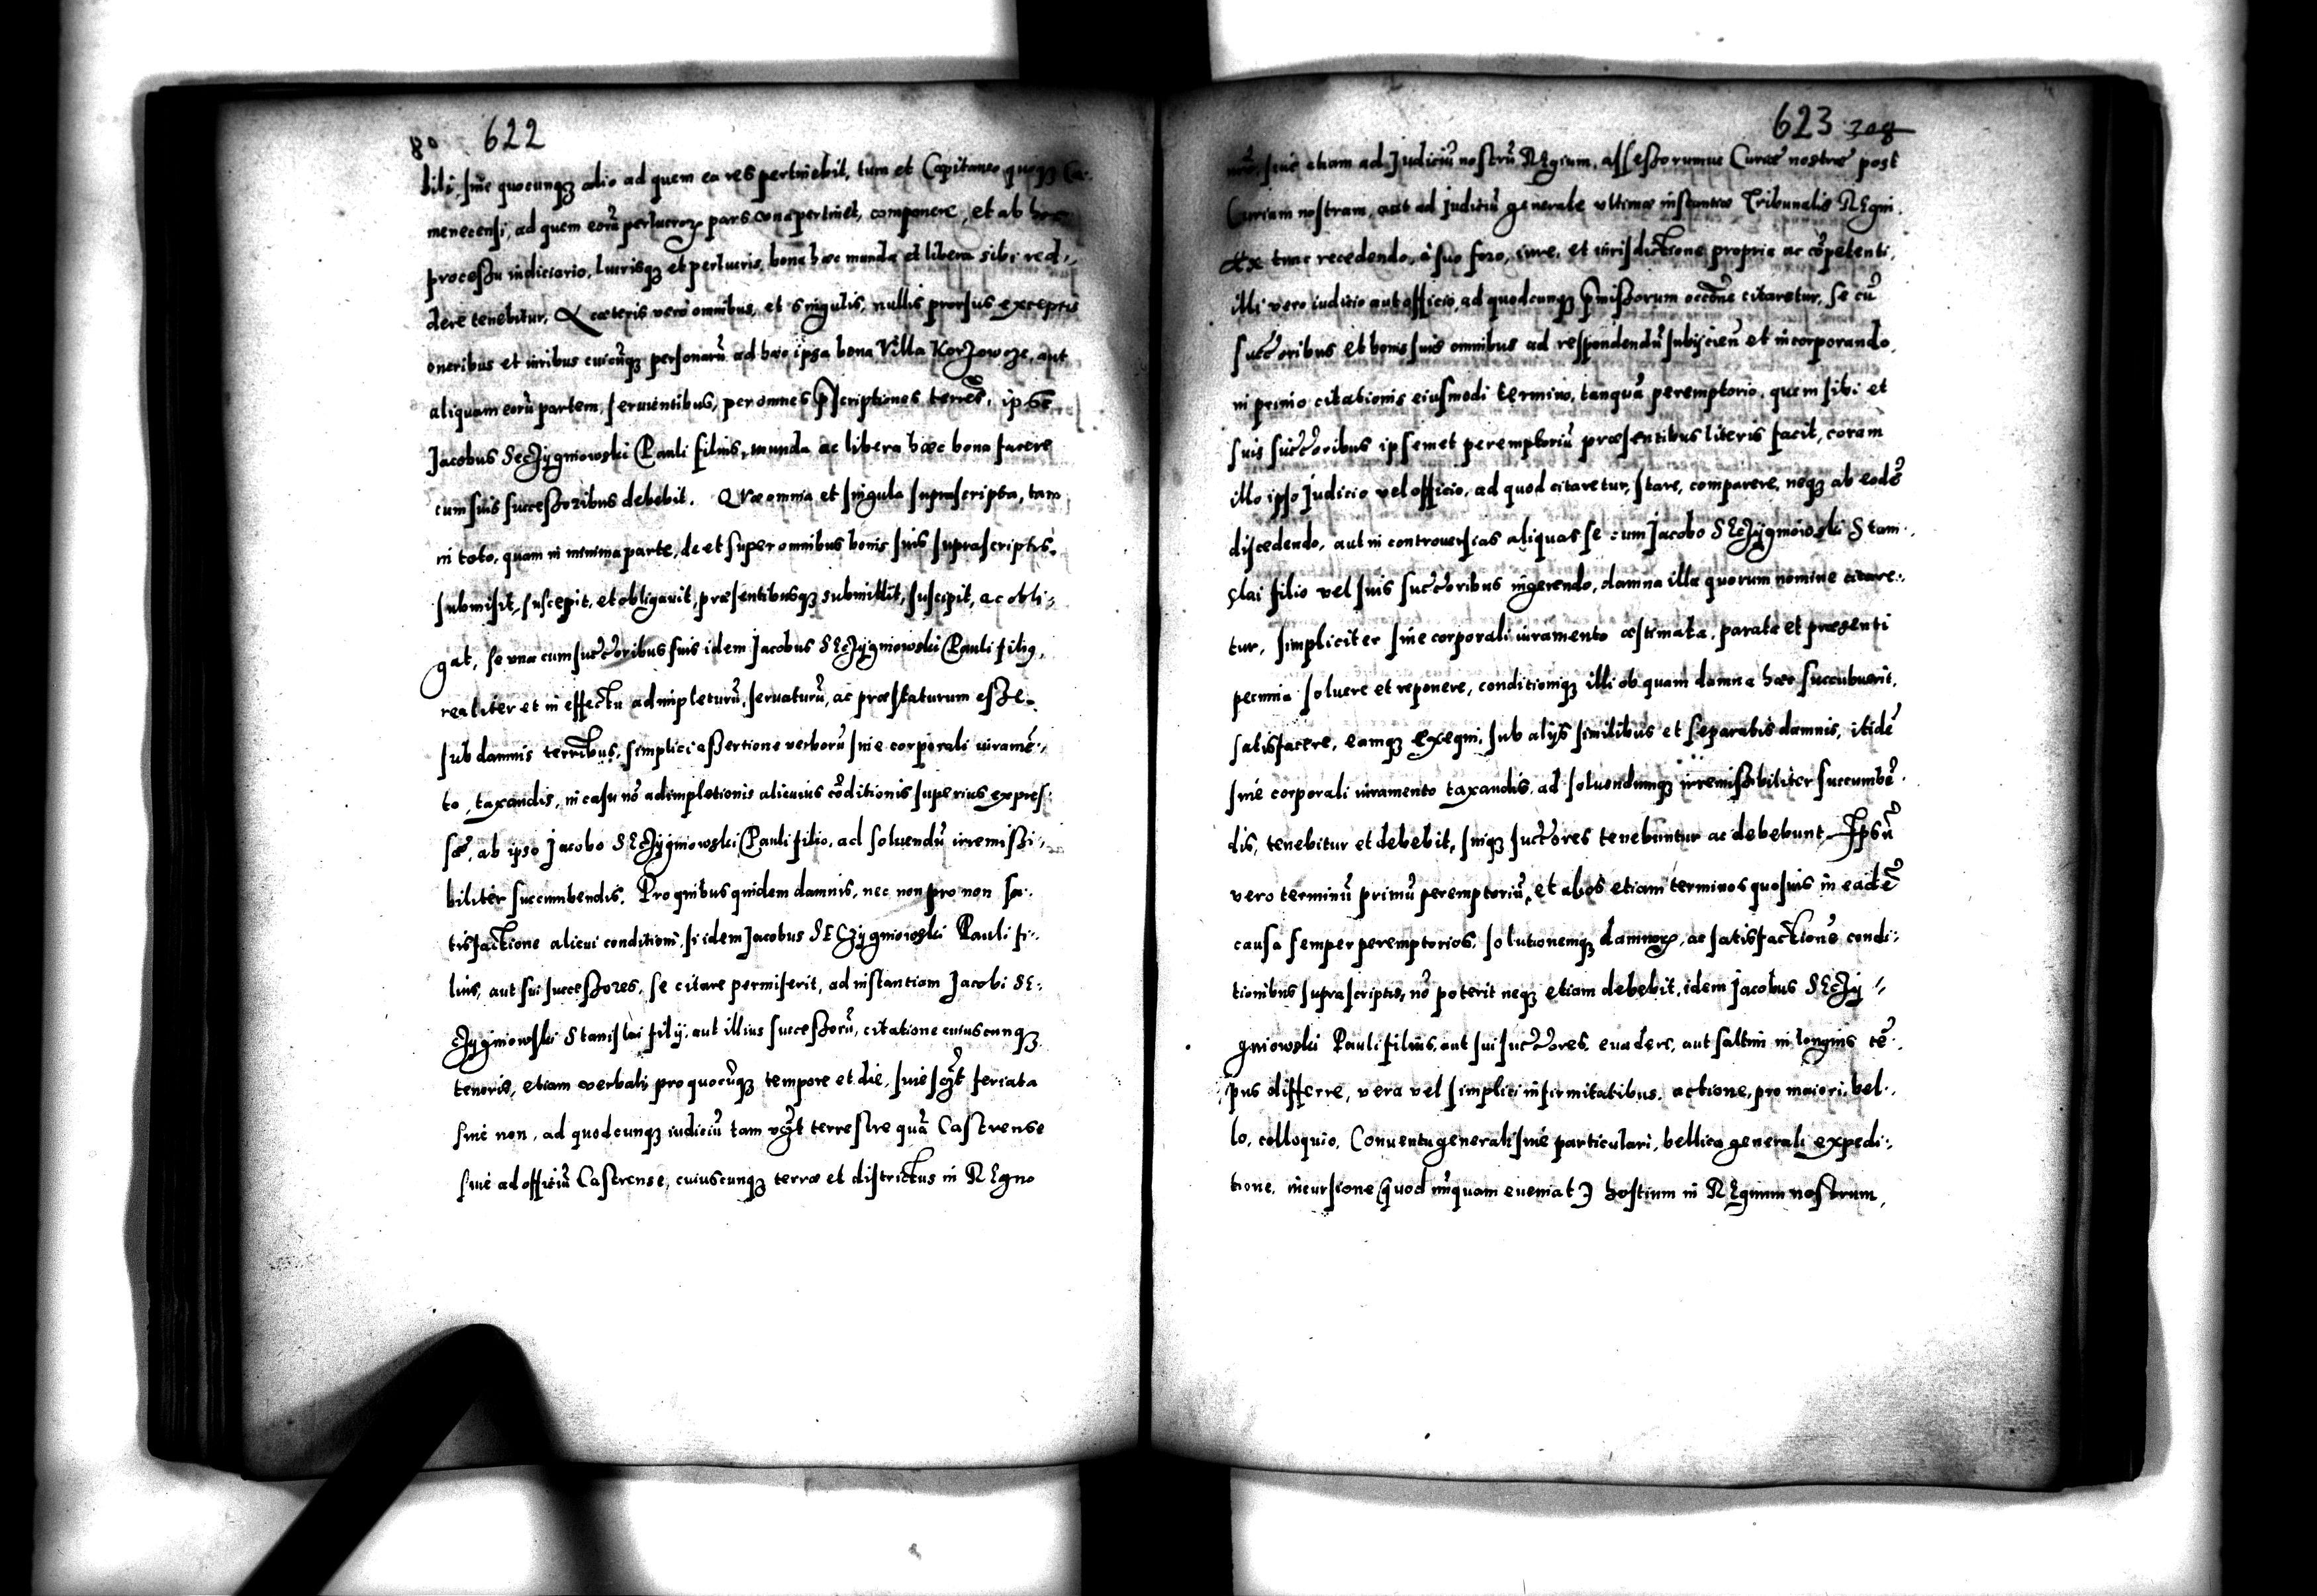 80 622
bili, siue quocunqꝫ alio ad quem ea res pertinebit, tum et Capitaneo quoqꝫ Ca-
menecensi, ad quem eorũ perlucroꝝ pars una pertinet, componere, et ab hoc
processu iudiciario, lucrisqꝫ et perlucris, bona hæc munda et libera sibi red-
dere tenebitur. A cæteris vero omnibus, et singulis, nullis prorsus exceptis
oneribus et iuribus cuicũqꝫ personarũ ad hæc ipsa bona Villa Korzowcze, aut
aliquam eorũ partem, seruientibus, per omnes p̃scriptiones terres, ipse
Jacobus Seczygniowski Pauli filius, munda ac libera hæc bona facere
cum suis successoribus debebit. Quæ omnia et singula suprascripta, tam
in toto, quam in minima parte, de et super omnibus bonis suis suprascriptis,
submisit, suscepit, et obligauit, præsentibusqꝫ submittit, suscipit, ac obli-
gat, se una cum succ̃oribus suis idem Jacobus SEczygniowski Pauli filiꝰ,
realiter et in effectu adimpleturũ, seruaturũ, ac præstaturum esse.
sub damnis terribus, simplici assertione verborũ sine corporali iuramẽ-
to, taxandis, in casu nõ adimpletionis alicuius cõditionis superius expres-
sæ, ab ipso Jacobo SEczygniowski Pauli filio, ad soluendũ irremissi-
biliter succumbendis. Pro quibus quidem damnis, nec non pro non sa-
tisfactione alicui conditioni, si idem Jacobus SECzygniowski Pauli fi-
lius, aut sui successores, se citare permiserit, ad instantiam Jacobi SE-
czygniowski Stanislai filij, aut illius successorũ, citatione cuiuscunqꝫ
tenoris, etiam verbali, pro quocũqꝫ tempore et die, siue sc̃t feriata
siue non, ad quodcunqꝫ iudiciũ tam vc̃t terrestre quã Castrense
siue ad officiũ Castrense, cuiuscunqꝫ terræ et districtus in REgno
623 308
nrõ, siue etiam ad Judiciũ nostrũ REgium, assessorumue Curiæ nostræ post
Curiam nostram, aut ad judiciũ generale vltimæ instantiæ Tribunalis REgni.
Ex tunc recedendo, à suo foro, iure, et iurisdictione propria ac cõpetenti,
illi vero iudicio aut officio, ad quodcunqꝫ p̃missorum occõne citaretur, se cũ
succ̃oribus et bonis suis omnibus ad respondendũ subijcieñ et incorporando,
in primo citationis eiusmodi termino, tanquã peremptorio, quem sibi et
suis succ̃oribus ipsemet peremptoriũ præsentibus literis facit, coram
illo ipso Judicio vel officio, ad quod citaretur, stare, comparere, neqꝫ ab eodẽ
discedendo, aut in controuersias aliquas se cum Jacobo SEczygniowski Stani-
slai filio vel suis succ̃oribus ingerendo, damna illa quorum nomine citare-
tur, simpliciter sine corporali iuramento æstimata, parata et præsenti
pecunia soluere et reponere, conditioniqꝫ illi ob quam damna hæc succubuerit,
satisfacere, eamqꝫ exequi, sub alijs similibus et separatis damnis, itidẽ
sine corporali iuramento taxandis, ad soluendumqꝫ irremissibiliter succumbẽ-
dis, tenebitur et debebit, suiqꝫ succ̃ores tenebuntur ac debebunt. Ipsũ
vero terminũ primũ peremptoriũ, et alios etiam terminos quosuis in eadẽ
causa semper peremptorios, solutionemqꝫ damnoꝝ, ac satisfactionẽ condi-
tionibus suprascriptis, nõ poterit neqꝫ etiam debebit, idem Jacobus SEczy-
gniowski Pauli filius, aut sui succ̃ores, euadere, aut saltim in longius tẽ-
pus differre, vera vel simplici infirmitatibus, actione, pro maiori, bel-
lo, colloquio, Conuentu generali siue particulari, bellica generali expedi-
tione, incursione (quod nũquam eueniat) hostium in REgnum nostrum,